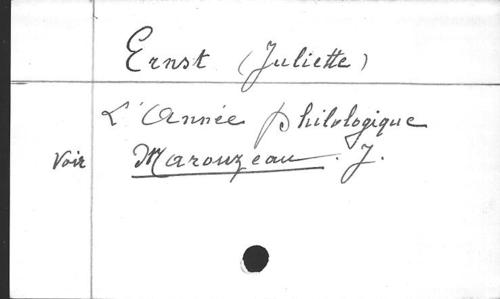 Ernst (Juliette)
L'Année philologique
Voir Marouzeau. J.